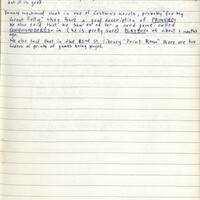 but it is good.
Danny mentioned that in one of Costain's novels, probably "For My
Great Folly" they have a good description of PRIMERO.
He also said that he saw an ad for a card game called
in (he is pretty sure) PLAYBOY of about 2 months
ago.
He also said that in the 42nd St. library "Print Room" there are two
folders of prints of games being played.